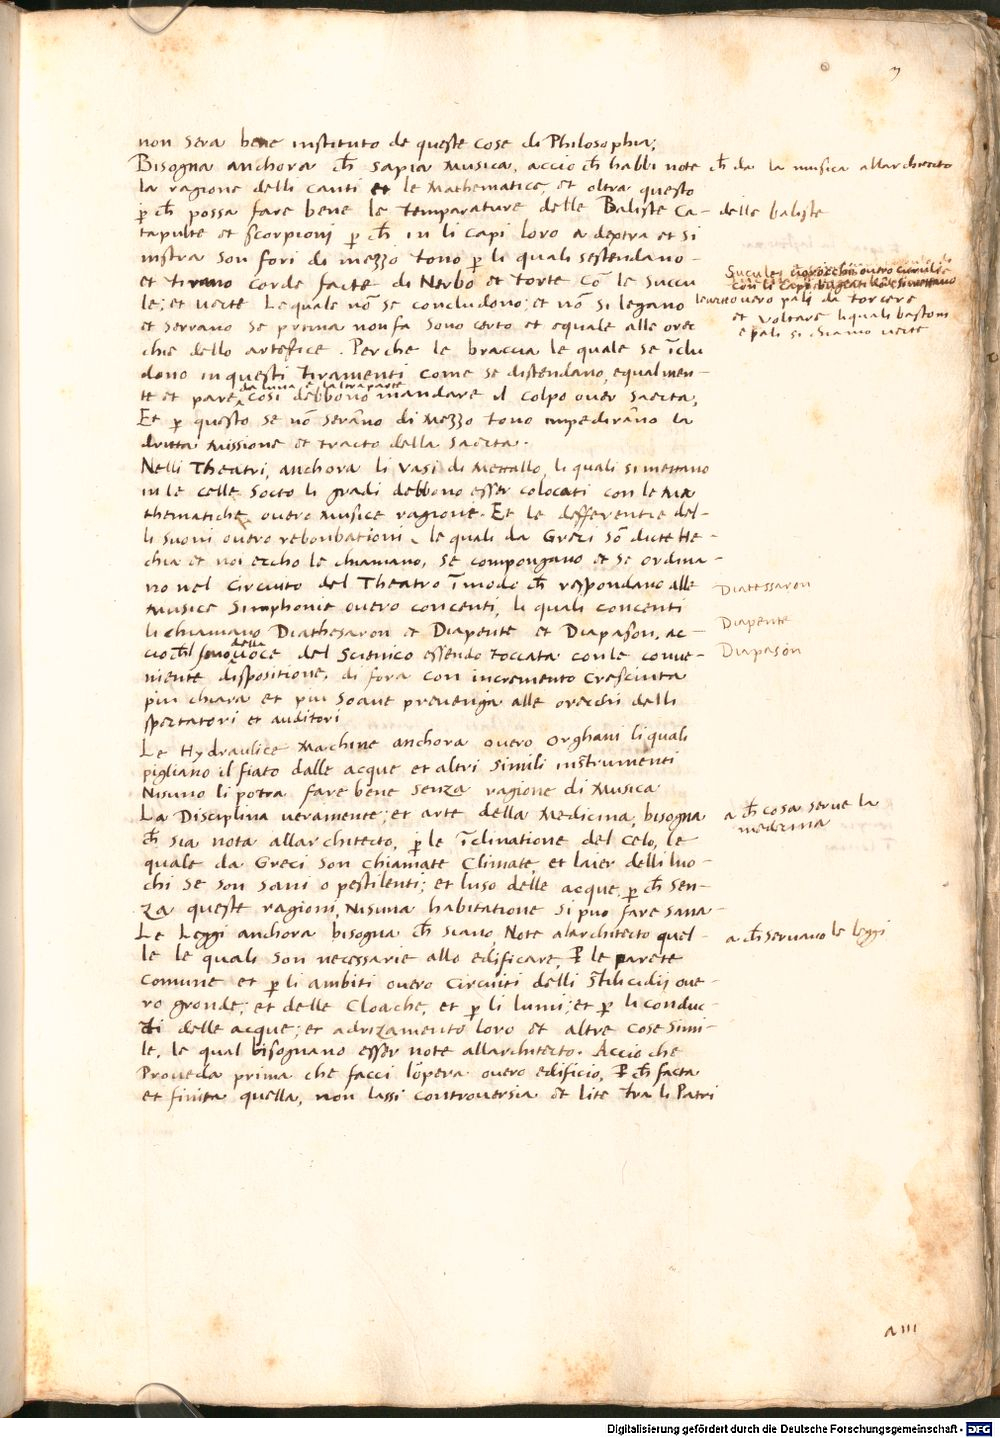 3
non sera bene instituto de queste cose di Philosophia;
Bisogna anchora ch̄ sapia Musica, accio ch̄ habbi note
la ragione delli canti et le Mathematice, et oltra questo
p̱ ch̄ possa fare bene le temparature delle Baliste Ca-
tapulte et scorpioni p̱ ch̄ in li capi loro a dextra et si
nistra son fori di mezzo tono p̱ li quali sestendano
et tirano corde facte di Nerbo et torte cō le succu
le; et verte Le quale nō se concludono; et nō si legano
et serrano se prima non fa sono certo et equale alle orec
chie dello artefice. Perche le braccia le quale se īclu
dono in questi tiramenti come se distendano, equalmen-
da luna e laltra parte
te et pare cosi debbono mandare il colpo over saetta,
Et p̱ questo se nō serāno di Mezzo tono impedirāno la
dritta Missione et tracto della saetta.
Nelli Theatri, anchora li vasi di Mettallo, li quali si mettano
in le celle socto li gradi debbono esser colocati con le Ma
thematiche, overo Musice ragione. Et le defferentie del-
li suoni overo rebonbationi, le quali da Greci sō dicte He-
chia et noi eccho le chiamano, se compongano et se ordina-
no nel Circuito del Theatro īmodo ch̄ respondano alle
Musice Simphonie overo concenti, li quali concenti
li chiamano Diathesaron et Diapente et Diapason, ac-
della
cio ch̄ voce del Scienico essendo toccata con le conve-
niente dispositione, di fora con incremento Cresciuta
piu chiara et piu soave prevenga alle orecchi delli
spectatori et auditori
Le Hydraulice Machine anchora overo Orghani li quali
pigliano il fiato dalle acque et altri simili instrumenti
Nisuno li potra fare bene senza ragione di Musica
La Disciplina veramente; et arte della Medicina, bisogna
ch̄ sia nota allarchitecto, p̱ le īclinatione del Celo, le
quale da Greci son chiamate Climate, et laier delli luo-
chi se son sani o pestilenti; et luso delle acque, p̱ ch̄ sen-
za queste ragioni, Nisuna habitatione si puo fare sana
Le Leggi anchora bisogna ch̄ siano Note alarchitecto quel-
le le quali son necessarie allo edificare, P̱ le parete
comune et p̱ li ambiti overo Circuiti delli stilicidij ove-
ro gronde; et delle Cloache, et p̱ li lumi; et p̱ li conduc-
ti delle acque; et adrizamento loro et altre cose simi-
le, le qual bisognano esser note allarchitecto. Accio che
Proveda prima che facci lopera overo edificio, P̱ ch̄ facta
et finita quella, non lassi controversia et lite tra li Patri
ch̄ da la musica allarchitecto
delle baliste
Sucule;
overo pali da torcere
et voltare li quali bastoni
e pali si chiamo verte
Diatessaron
Diapente
Diapason
a ch̄ cosa serve la
medicina
a ch̄ servano le leggi
a III
Digitalisierung gefördert durch die Deutsche Forschungsgemeinschaft - DFG